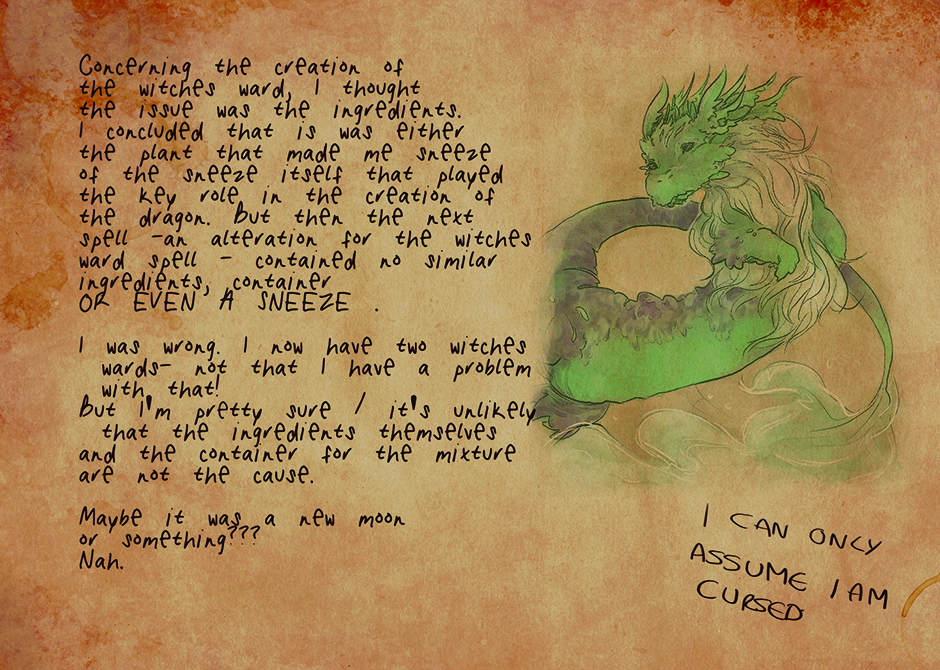 Concerning the creation of
the witches ward, I thought
the issue was the ingredients.
I concluded that is was either
the plant that made me sneeze
of the sneeze itself that played
the key role in the creation of
the dragon. But then the next
spell -an alteration for the witches
ward spell - contained no similar
ingredients, container
OR EVEN A SNEEZE .
I was wrong. I now have two witches
wards- not that I have a problem
with that!
But I'm pretty sure / it's unlikely
that the ingredients themselves
and the container for the mixture
are not the cause.
Maybe it was a new moon
or something???
Nah.
I CAN ONLY
ASSUME I AM
CURSED